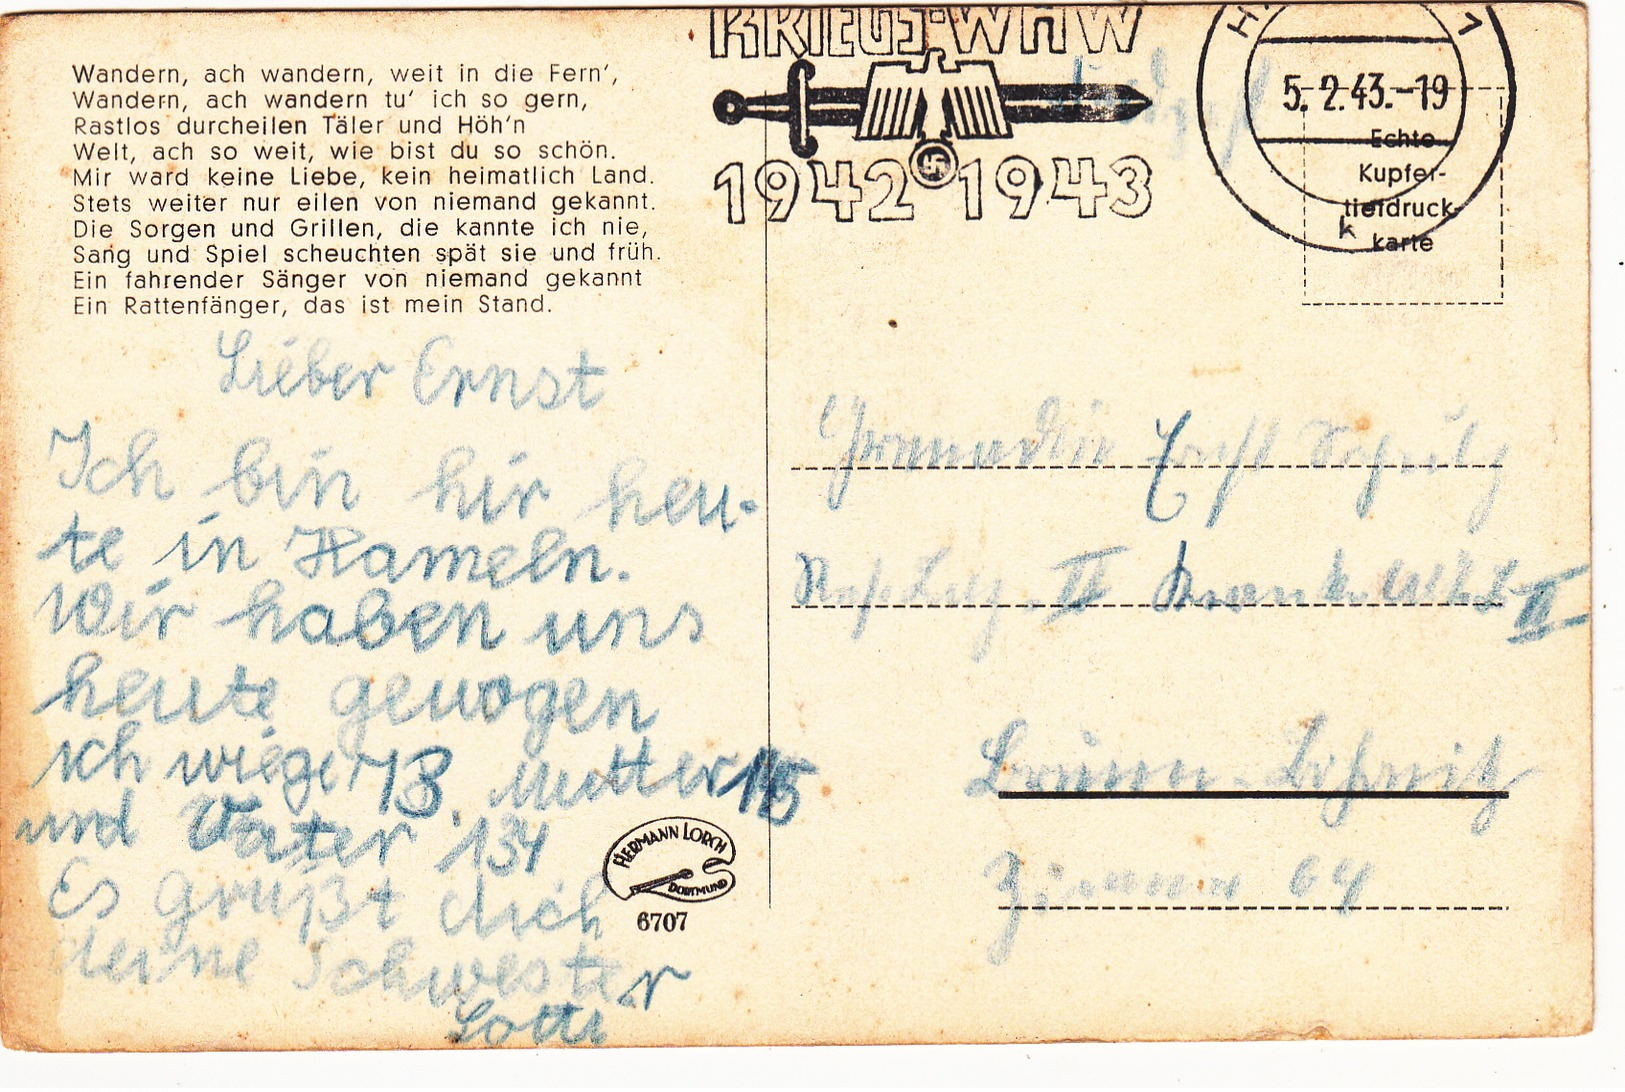 Wandern, ach wandern, weit in die Fern',
Wandern, ach wandern tu' ich so gern,
Rastlos durcheilen Täler und Höh'n
Welt, ach so weit, wie bist du so schön.
Mir ward keine Liebe, kein heimatlich Land.
Stets weiter nur eilen von niemand gekannt.
Die Sorgen und Grillen, die kannte ich nie,
Sang und Spiel scheuchten spät sie und früh.
Ein fahrender Sänger von niemand gekannt
Ein Rattenfänger, das ist mein Stand.
Lieber Ernst
Ich bin hir heu-
te in Hameln.
Wir haben uns
heute gewogen
ich wiege 73. Mutter 115
und Vater 134
Es grüßt dich
deine Schwester
Lotti
HERMANN LORCH
DORTMUND
6707
KRIEGS-WHW
1942 1943
5.2.43.-19
k
Echte
Kupfer-
tiefdruck-
karte
Ernst Schulz
II
II
Brünn
Zimmer 64